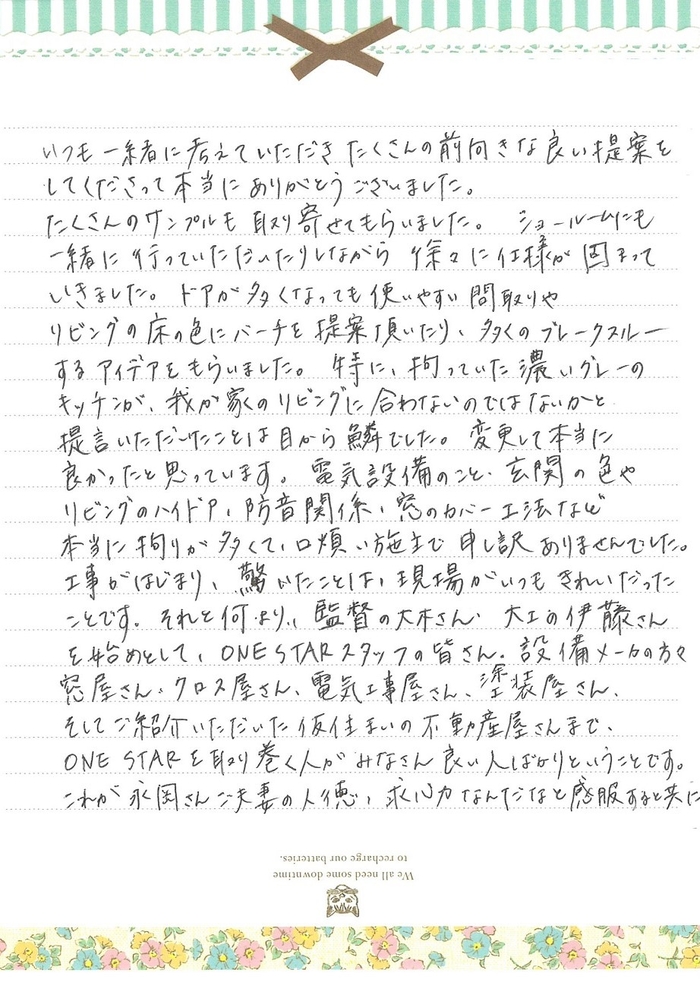 いつも一緒に考えていただき たくさんの前向きな良い提案を
してくださって本当にありがとうございました。
たくさんのサンプルも取り寄せてもらいました。 ショールームにも
一緒に行っていただいたりしながら 徐々に仕様が固まって
いきました。ドアが多くなっても使いやすい間取りや
リビングの床の色にバーチを提案頂いたり、多くのブレークスルー
するアイデアをもらいました。特に、拘っていた濃いグレーの
キッチンが、我が家のリビングに合わないのではないかと
提言いただけたことは目から鱗でした。変更して本当に
良かったと思っています。電気設備のこと、玄関の色や
リビングのハイドア、防音関係、窓のカバー工法など
本当に拘りが多くて、口煩い施主で申し訳ありませんでした。
工事がはじまり、驚いたことは、現場がいつもきれいだった
ことです。それと何より、監督の大木さん、大工の伊藤さん
を始めとして、ONE STARスタッフの皆さん、設備メーカの方々
窓屋さん、クロス屋さん、電気工事屋さん、塗装屋さん、
そしてご紹介いただいた仮住まいの不動産屋さんまで、
ONE STARを取り巻く人がみなさん良い人ばかりということです。
これが永岡さんご夫妻の人徳、求心力なんだなと感服すると共に
We all need some downtime
to recharge our batteries.